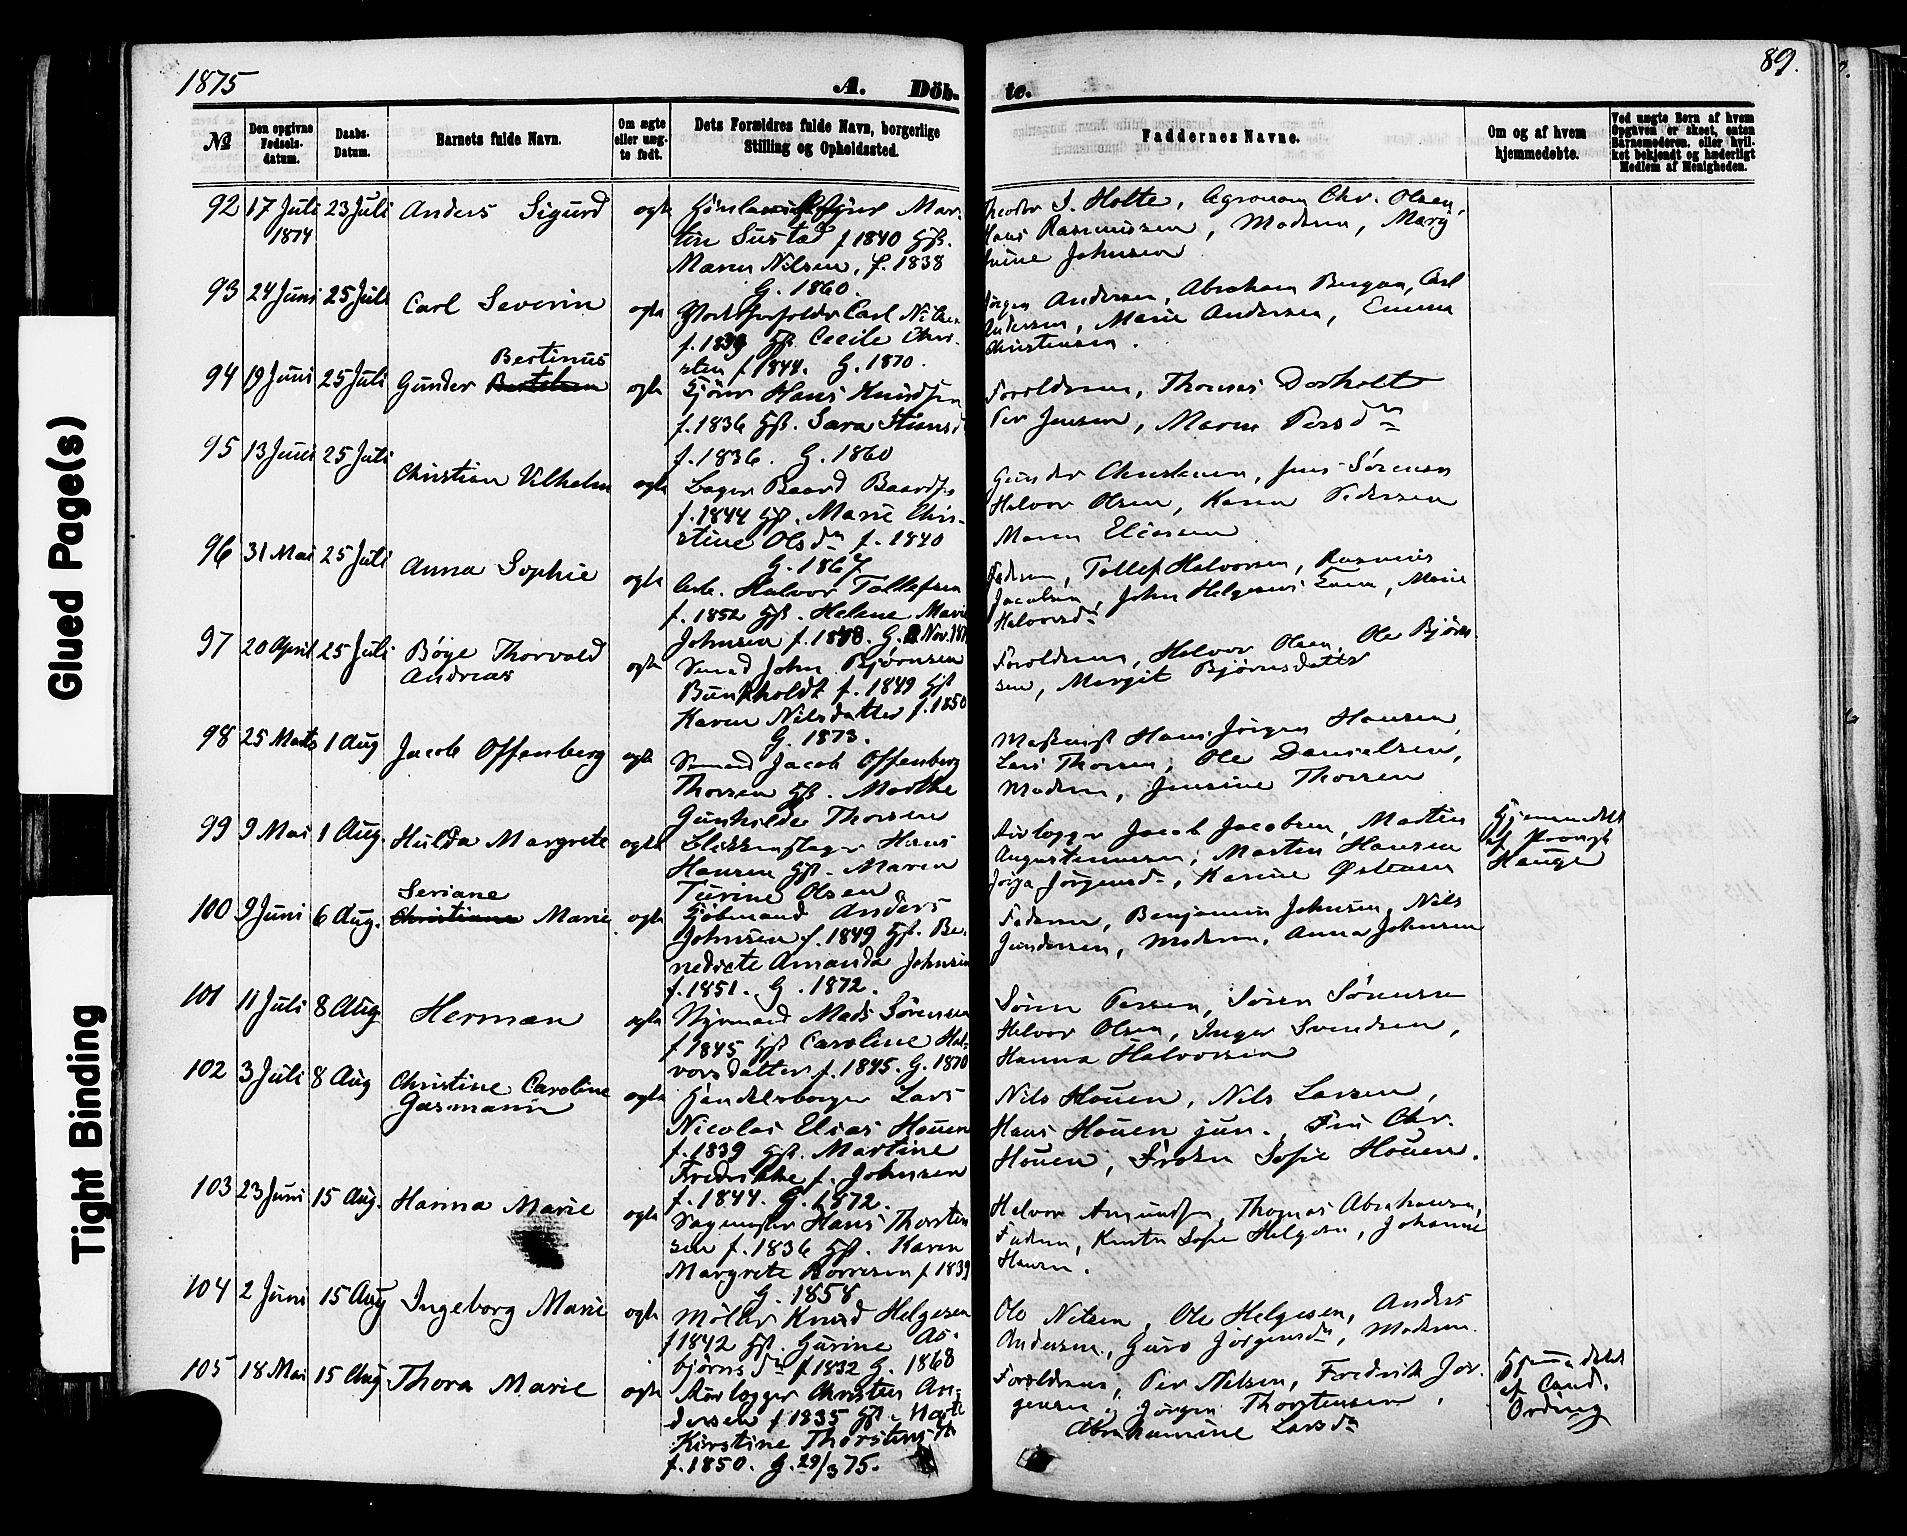 1875
A. Döb-
te.
89.
№
Den opgivne Fødsels-datum.
Daabs-Datum.
Barnets fulde Navn.
Om ægte eller uæg-te født.
Dets Forældres fulde Navn, borgerlige Stilling og Opholdssted.
Faddernes Navne.
Om og af hvem hjemmedøbte.
Ved uægte Børn af hvem Opgaven er skeet, enten Barnemoderen, eller hvil-ket bekjendt og hæderligt Medlem af Menigheden.
92 17 Juli 1874 23 Juli Anders Sigurd ægte Mar-
tin Sustad f 1840 Hst.
Maren Nilsen, f. 1838
G. 1860.
Theodor I. Holte, Agronom Chr. Olsen,
Hans Rasmussen, Moderen,
Johnsen
93 24 Juni 25 Juli Carl Severin ægte Carl Nilsen
f. 1839 Hst. Cecilie Chri-
sten f 1848. G. 1870.
Jørgen Andersen, Abraham Bergan, Carl
Andersen, Marie Andersen, Emma
Christensen.
94 19 Juni 25 Juli Gunder Bertinus ægte Hans Knudsen
f. 1836 Hst. Sara
f. 1836. G. 1860
Forældrene, Thomas Dorholt
Per Jensen, Maren Persd
95 13 Juni 25 Juli Christian Vilhelm ægte Bager Baard Baards
f. 1844 Hst. Marie Chri-
stine Olsd f. 1840
G. 1867
Gunder Christensen, Jens Sörensen
Halvor Olsen, Karen Pedersen
Maren Eliasen
96 31 Mai 25 Juli Anna Sophie ægte Arb. Halvor Tollefsen
f. 1852 Hst. Helene Marie
Johnsen f. 1848. G. Nov.
Faderen, Tollef Halvorsen, Rasmus
Jacobsen, John Helgesen, Marie
Halvorsd
97 20 April 25 Juli Böye Thorvald
Andreas ægte Sømand John Bjørnsen
Bunkholdt f. 1849 Hst
Karen Nilsdatter f. 1850
G. 1873.
Forældrene, Halvor Olsen, Ole Bjørn-
sen, Margit Bjørnsdatter
98 25 Marts 1 Aug Jacob Offenberg ægte Sømand Jacob Offenberg
Thorsen Hst. Marthe
Gunhilde Thorsen
Maskinist Hans Jörgen Hansen,
Lars Thorsen, Ole Danielsen,
Moderen, Jensine Thorsen
99 9 Mai 1 Aug. Hulda Margrete ægte Blikkenslager Hans
Hansen Hst. Maren
Turine Olsen
Jacob Jacobsen, Martin
Augustinusen, Morten Hansen
Jørgensd, Karine Østensen
Hjemmedøbt
af Provst
Hauge
100 9 Juni 6 Aug. Seriane
Christiane Marie ægte Kjöbmand Anders
Johnsen f. 1849 Hst. Be-
nedicte Amanda Johnsen
f. 1851. G. 1872.
Faderen, Benjamin Johnsen, Nils
Gundersen, Moderen, Anna Johnsen
101 11 Juli 8 Aug Herman ægte Mads Sörensen
f 1845 Hst Caroline Hal-
vorsdatter f. 1845. G. 1870
Sören Persen, Sören Sörensen
Halvor Olsen, Inger Svendsen,
Hanna Halvorsen
102 3 Juli 8 Aug Christine Caroline
Gasmann ægte Handelsborger Lars
Nicolai Elias Houen
f. 1839 Hst. Martine
Fredrikke f. Johnsen
f. 1844. G. 1872.
Nils Houen, Nils Larsen,
Hans Houen jun., Fru Chr.
Houen, Frøken Sofie Houen.
103 23 Juni 15 Aug. Hanna Marie ægte Sagmester Hans Thorsten
sen f. 1836 Hst. Karen
Margrete Borresen f 1839
G. 1858
Halvor Amundsen, Thomas Abrahamsen,
Faderen, Sofie Helgesen, Johanne
Hansen.
104 2 Juni 15 Aug Ingeborg Marie ægte Möller Knud Helgesen
f 1842 Hst. Gurine As-
björnsd f 1832 G. 1868
Ole Nilsen, Ole Helgesen, Anders
Andersen, Guro Jørgensd, Moderen
105 18 Mai 15 Aug Thora Marie ægte Christen An-
dersen f 1835 Hst.
Kirstine Thorstensd
f. 1850. G. 29/3 75.
Forældrene, Per Nilsen, Fredrik Jør-
gensen, Jørgen Thorstensen,
Abrahamine Larsd
Hjemmedøbt
af Cand.
Ording
Glued Page(s)
Tight Binding